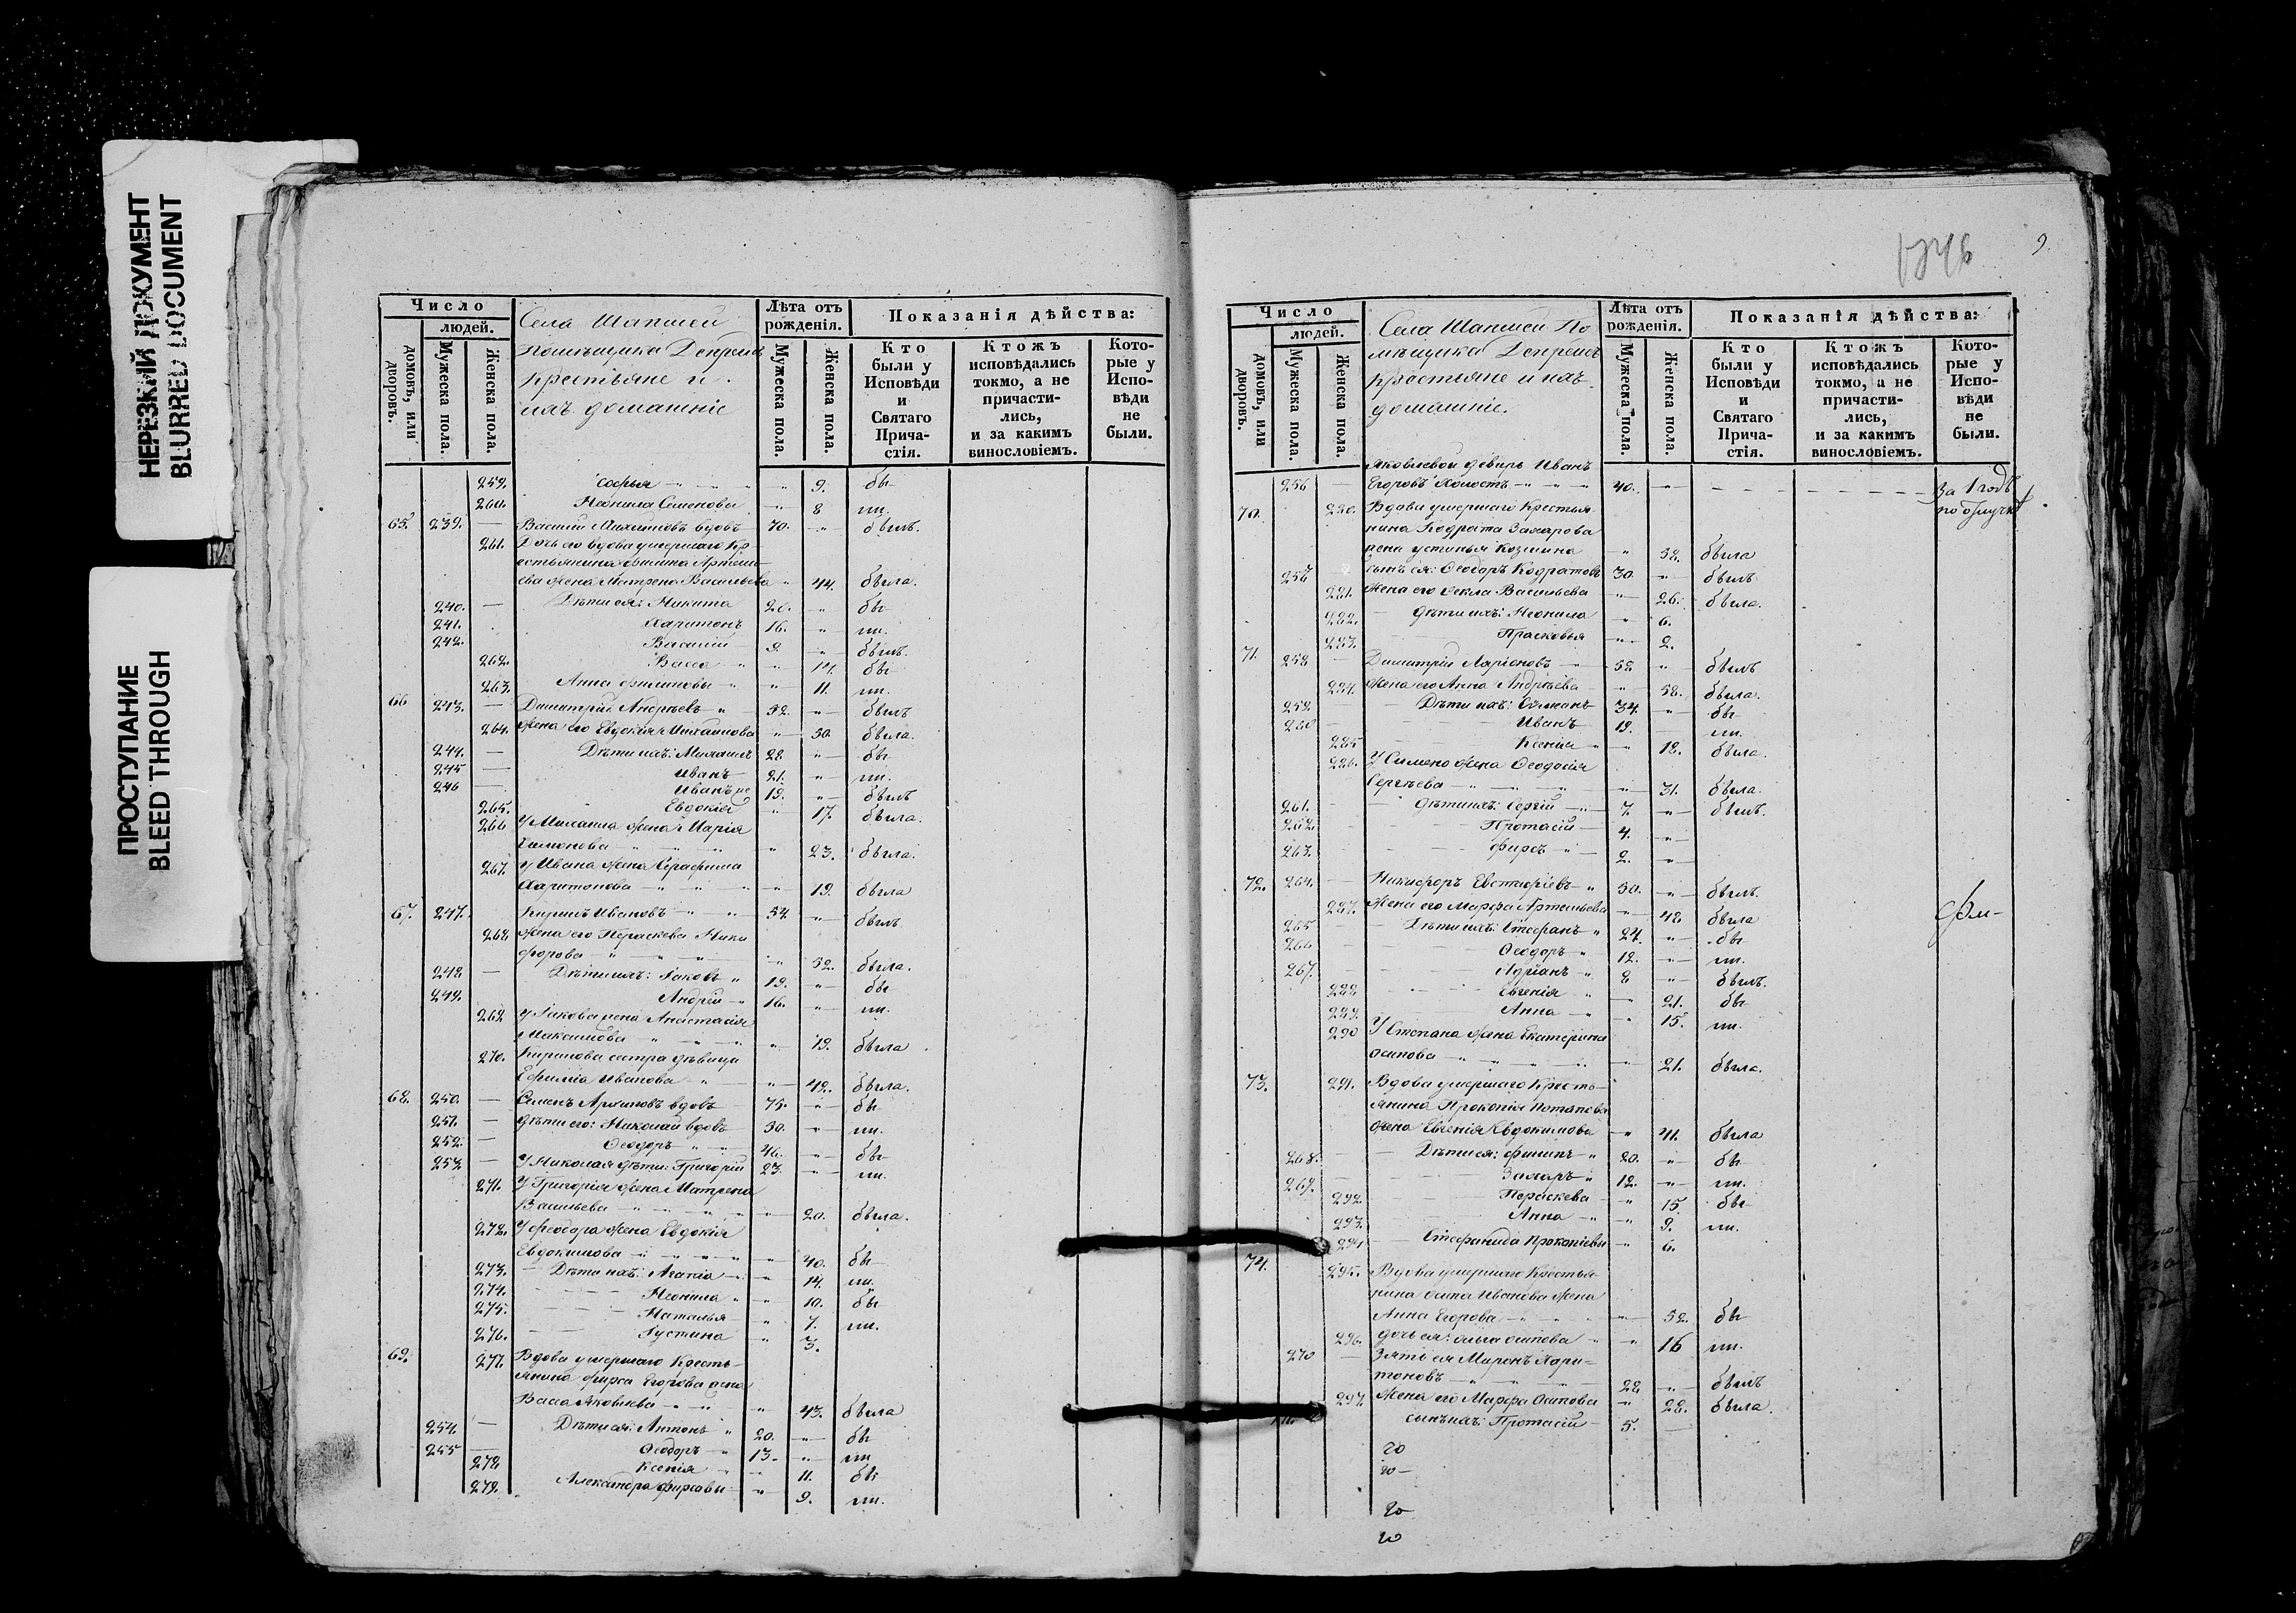 НЕРЕЗКИЙ ДОКУМЕНТ
BLURRED DOCUMENT
ПРОСТУПАНИЕ
BLEED THROUGH
Число
людей.
домовъ, или дворовъ.
Мужеска пола.
Женска пола.
Села
Помѣщика
крестьяне и
ихъ домашніе
Лѣта отъ рожденія.
Мужеска пола.
Женска пола.
Показанія дѣйства:
Кто были у Исповѣди и Святаго Прича-стія.
Ктожъ исповѣдались токмо, а не причасти-лись, и за какимъ винословіемъ.
Кото-рые у Испо-вѣди не были.
259. Софья 9. бы
260. Неонила Семеновы 8 ли.
65. 239. Василій вдовъ 70. былъ.
261. Дочь его вдова умершаго Кр-
естьянина Филипа
ева жена Матрена Васильева 44. была.
240. Дѣти ея: Никита 20. бы
241. Харитонъ 16. ли.
242. Василій 9. былъ.
262. Васса 14. бы
263. Анна Филиповы 11. ли.
66 243. Димитрій Андреевъ 52. былъ
264. Жена его Евдокія Михайлова 50. была.
244. Дѣти ихъ: Михаилъ 28 бы
245 Иванъ 21. ли.
246 Иванъ 19. былъ
265. Евдокія 17. была.
266 У Михаила жена Марія
23. была.
267. У Ивана жена Серафима
Харитонова 19. была
67. 247. Кирилъ Ивановъ 54. былъ
268 Жена его Параскева Ники
форова 52. была.
248 Дѣти ихъ: Іаковъ 19. бы
249. Андрей 16. ли.
269 У Іакова жена Анастасія
Максимова 19. была
270. Кирилова сестра дѣвица
Ефимія Иванова 42. была.
68. 250. Семенъ вдовъ 75. бы
251. Дѣти его: Николай вдовъ 50. ли.
252. Ѳеодоръ 46. бы
253. У Николая дѣти: Григорій 23. ли.
271. У Григорія жена Матрена
Васильева 20. была.
272. У Феодора жена Евдокія
Евдокимова 40. бы
273. Дѣти ихъ: Агапія 14. ли.
274. Неонила 10. бы
275. Наталья 7. ли.
276. Іустина 3.
69. 277. Вдова умершаго Кресть-
янина Фирса Егорова жена
Васса Яковлева 43. была
254. Дѣти ея: Антонъ 20. бы
255 Ѳеодоръ 13. ли
278 Ксенія 11. бы
279. Александра Фирсовы 9. ли.
9.
Число
людей.
домовъ, или дворовъ.
Мужеска пола.
Женска пола.
Села По
мѣщика
крестьяне и ихъ
домашніе.
Лѣта отъ рожденія.
Мужеска пола.
Женска пола.
Показанія дѣйства:
Кто были у Исповѣди и Святаго Прича-стія.
Ктожъ исповѣдались токмо, а не причасти-лись, и за какимъ винословіемъ.
Кото-рые у Испо-вѣди не были.
Яковлевой деверь Иванъ
256 Егоровъ Холостъ 40. За 1 годъ
по отлучкѣ
70. 280. Вдова умершаго Крестья-
нина Кодрата Захарова
жена Устинья Козмина 58. была
257 Сынъ ея: Ѳеодоръ Кодратовъ 30. былъ
281. Жена его Фекла Васильева 26. была.
282. Дѣти ихъ: Неонила 6.
283. Прасковья 2.
71. 258 Димитрій Ларіоновъ 58 былъ
284. Жена его Анна Андреева 58. была.
259. Дѣти ихъ: 34. бы
260 Иванъ 19. ли.
285 Ксенія 18. была.
286. У жена Ѳеодосія
Сергѣева 31. была.
261. Дѣти ихъ: Сергій 7. былъ.
262. Протасій 4.
263. Фирсъ 2.
72. 264. Никифоръ 50. былъ.
287. Жена его Марфа Артемьева 48 была
265 Дѣти ихъ: Стефанъ 24. бы
266 Ѳеодоръ 12. ли.
267. Адріанъ 8 былъ.
288 Евгенія 21. бы
289. Анна 15. ли.
290 У Степана жена Екатерина
Осипова 21. была.
73. 291. Вдова умершаго Кресть-
янина Прокопія Потапова
жена Евгенія Евдокимова 41. была
268. Дѣти ея: Филипъ 20. бы
269. Захаръ 12. ли.
292. Параскева 15. бы
293. Анна 9. ли.
294 Стефанида Прокопіевы 6.
74. 295. Вдова умершаго Крестья-
нина Осипа Иванова жена
Анна Егорова 52. бы
296. Дочь ея: Ольга Осипова 16 ли.
270 Зять ея Миронъ Хари-
тоновъ 28 былъ
297. Жена его Марфа Осипова 28. была.
Сынъ ихъ: Протасій 5.